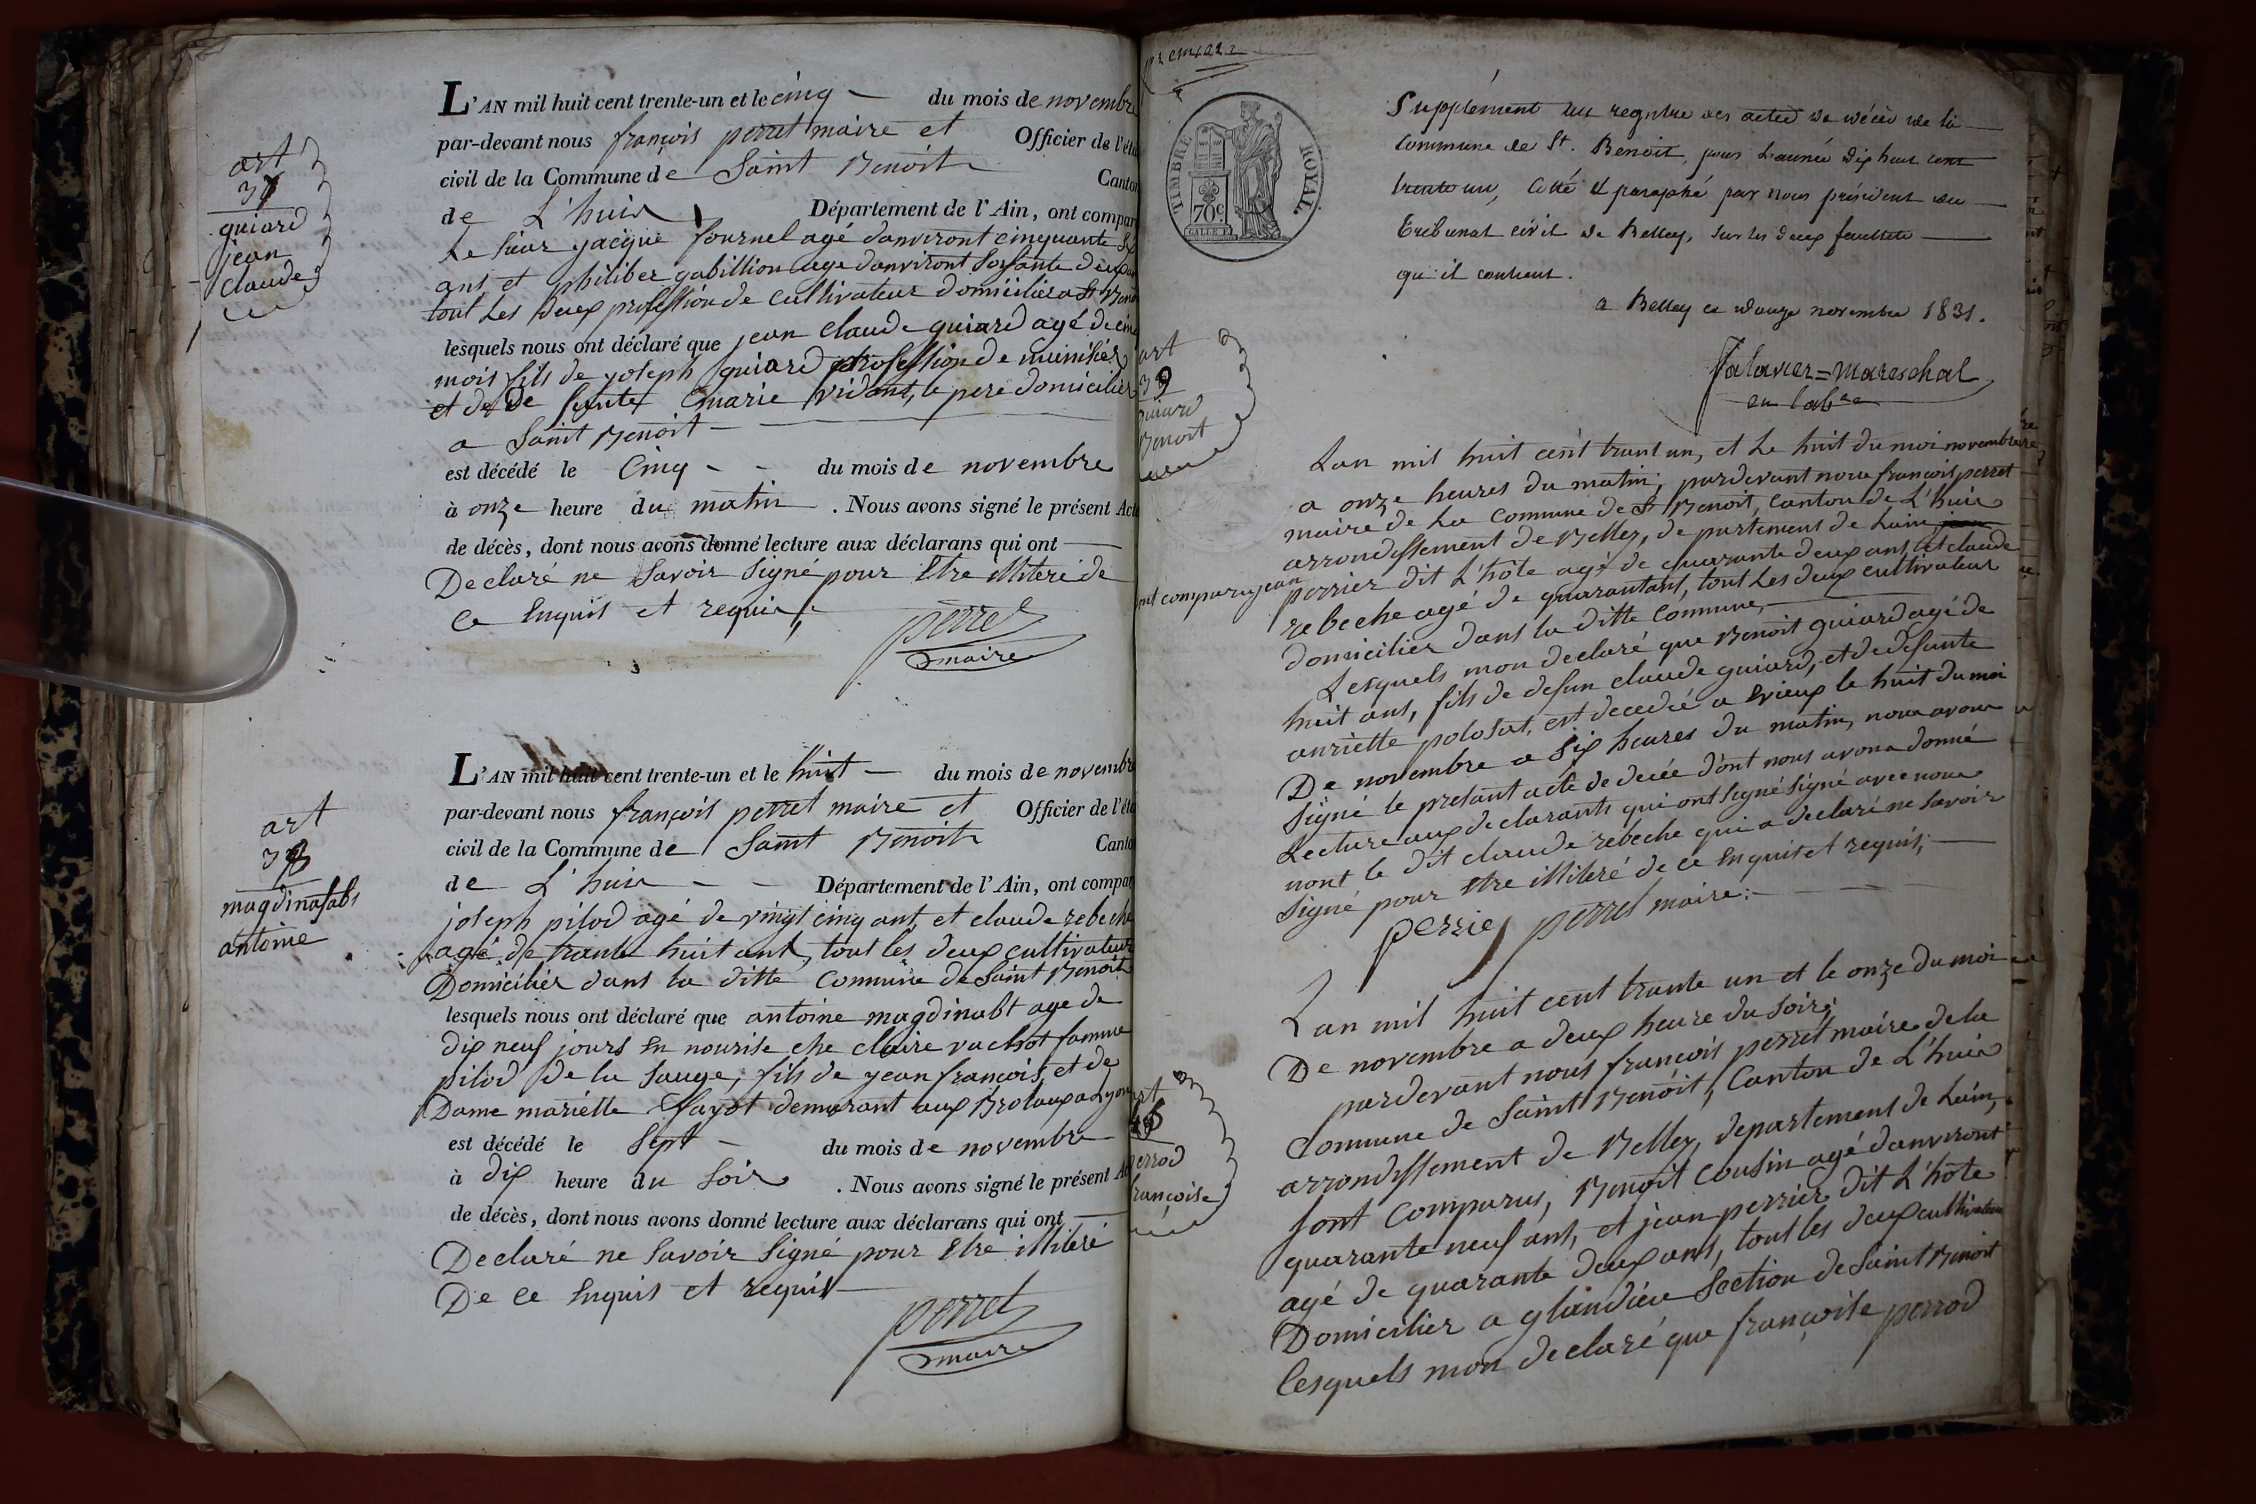 art
37
guiard
jean
claude
L'AN mil huit cent trente-un et le cinq du mois de novembre
par-devant nous françois perret maire et Officier de l'éta
civil de la Commune de Saint Benoit Canton
de L'huis Département de l'Ain, ont compar
Le sieur jacque fournel agé danviront cinquante six
ans et philiber gabillion age danviront soisante deux ans
tout Les Deux proffession de cultivateur domicilier a St Benoit
lesquels nous ont déclaré que jean claude guiard agé de cinq
mois fils de joseph guiard proffession de meunier
et de De funte marie vidont, le pere domicilier
a Saint Benoit
est décédé le Cinq du mois de novembre
à onze heure du matin . Nous avons signé le présent Acte
de décès, dont nous avons donné lecture aux déclarans qui ont
Declaré ne Savoir Signé pour Etre illiteré de
Ce Enquis et requis,
perret
maire
art
38
magdinabs
antoine
L'AN mil huit cent trente-un et le huit du mois de novembre
par-devant nous françois perret maire et Officier de l'éta
civil de la Commune de Saint Benoit Canto
de L'huis Département de l'Ain, ont compar
joseph pilod agé de vingt cinq ant, et claude rebeche
agé de trante huit ant, tout les deux cultivateur
Domicilier dans la ditte Commune de Saint Benoit
lesquels nous ont déclaré que antoine magdinabt age de
dix neuf jours En nourise che claire vachot famme
pilod De la Sauge, fils de jean françois et de
Dame mariette fayot demurant aux Brotaux a Lyon
est décédé le Sept du mois de novembre
à dix heure du Soir . Nous avons signé le présent Ac
de décès, dont nous avons donné lecture aux déclarans qui ont
Declaré ne Savoir Signé pour Etre illiteré
De ce Enquis et requis
perret
maire
premier
TIMBRE ROYAL.
70c
Supplément au registre des actes de décès de la
Commune de St. Benoit, pour l'année dix huit cent
trente un, Cotté et paraphé par nous président du
Tribunal civil de Belley, sur les deux feuillets
qu'il contient.
a Belley ce douze novembre 1831.
Falavier=Mareschal
art
39
guiard
Benoit
Lan mil huit cent trant un, et Le huit du moi novembre
a onze heures du matin, pardevant nous françois perret
maire de La Commune de St Benoit, Canton de L'huis
arrondissement de Belley, departement de Lain,
ont comparu jean perrier dit L'hôte agé de quarante deux ans, et claude
rebeche agé de quarantant, tout Les deux cultivateur
domicilier dans la ditte Commune,
Lesquels mon declaré que Benoit guiard agé de
huit ans, fils de defun claude guiard, et de defunte
anriette polosat, est decedé a Evieux le huit du moi
De novembre a Six heures du matin, nous avons
Signé le presant acte de decée dont nous avons donné
Lecture aux declarants qui ont Signé Signé avec nous
nont le dit claude rebeche qui a declaré ne Savoir
Signé pour Etre illiteré de ce Enquis et requis,
perrier perret maire
art
40
perrod
françoise
Lan mil huit cent trante un et le onze du moi
De novembre a deux heure du Soire,
pardevant nous françois perret maire de la
Commune de Saint Benoit, Canton de L'huis
arrondissement de Belley, departement de Lain,
Sont Comparus, Benoit Cousin agé danviront
quarante neuf ans, et jean perrier dit L'hôte
agé de quarante deux ans, tout les deux cultivateur
Domicilier a glandieu Section de Saint Benoit
lesquels mon declaré que françoise perrod